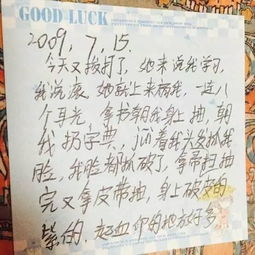 GOOD LUCK
2009,7,15.
今天又挨打了,她来说我学习,
我说滚,她就上来搧我,一连八
个耳光,拿书朝我身上抽,朝
我扔字典,揪着我头发抓我
脸,我脸都抓破了,拿带扫抽
完又拿皮带抽,身上破皮的
紫的,起血印的地方好多